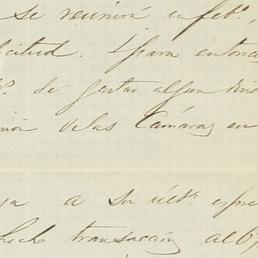 se reunirá en feb.º,
licitud. Y para entonces
de gastar algun din
nion de las Camaras en
a a su últ.º espre
hecho transacción al 6%